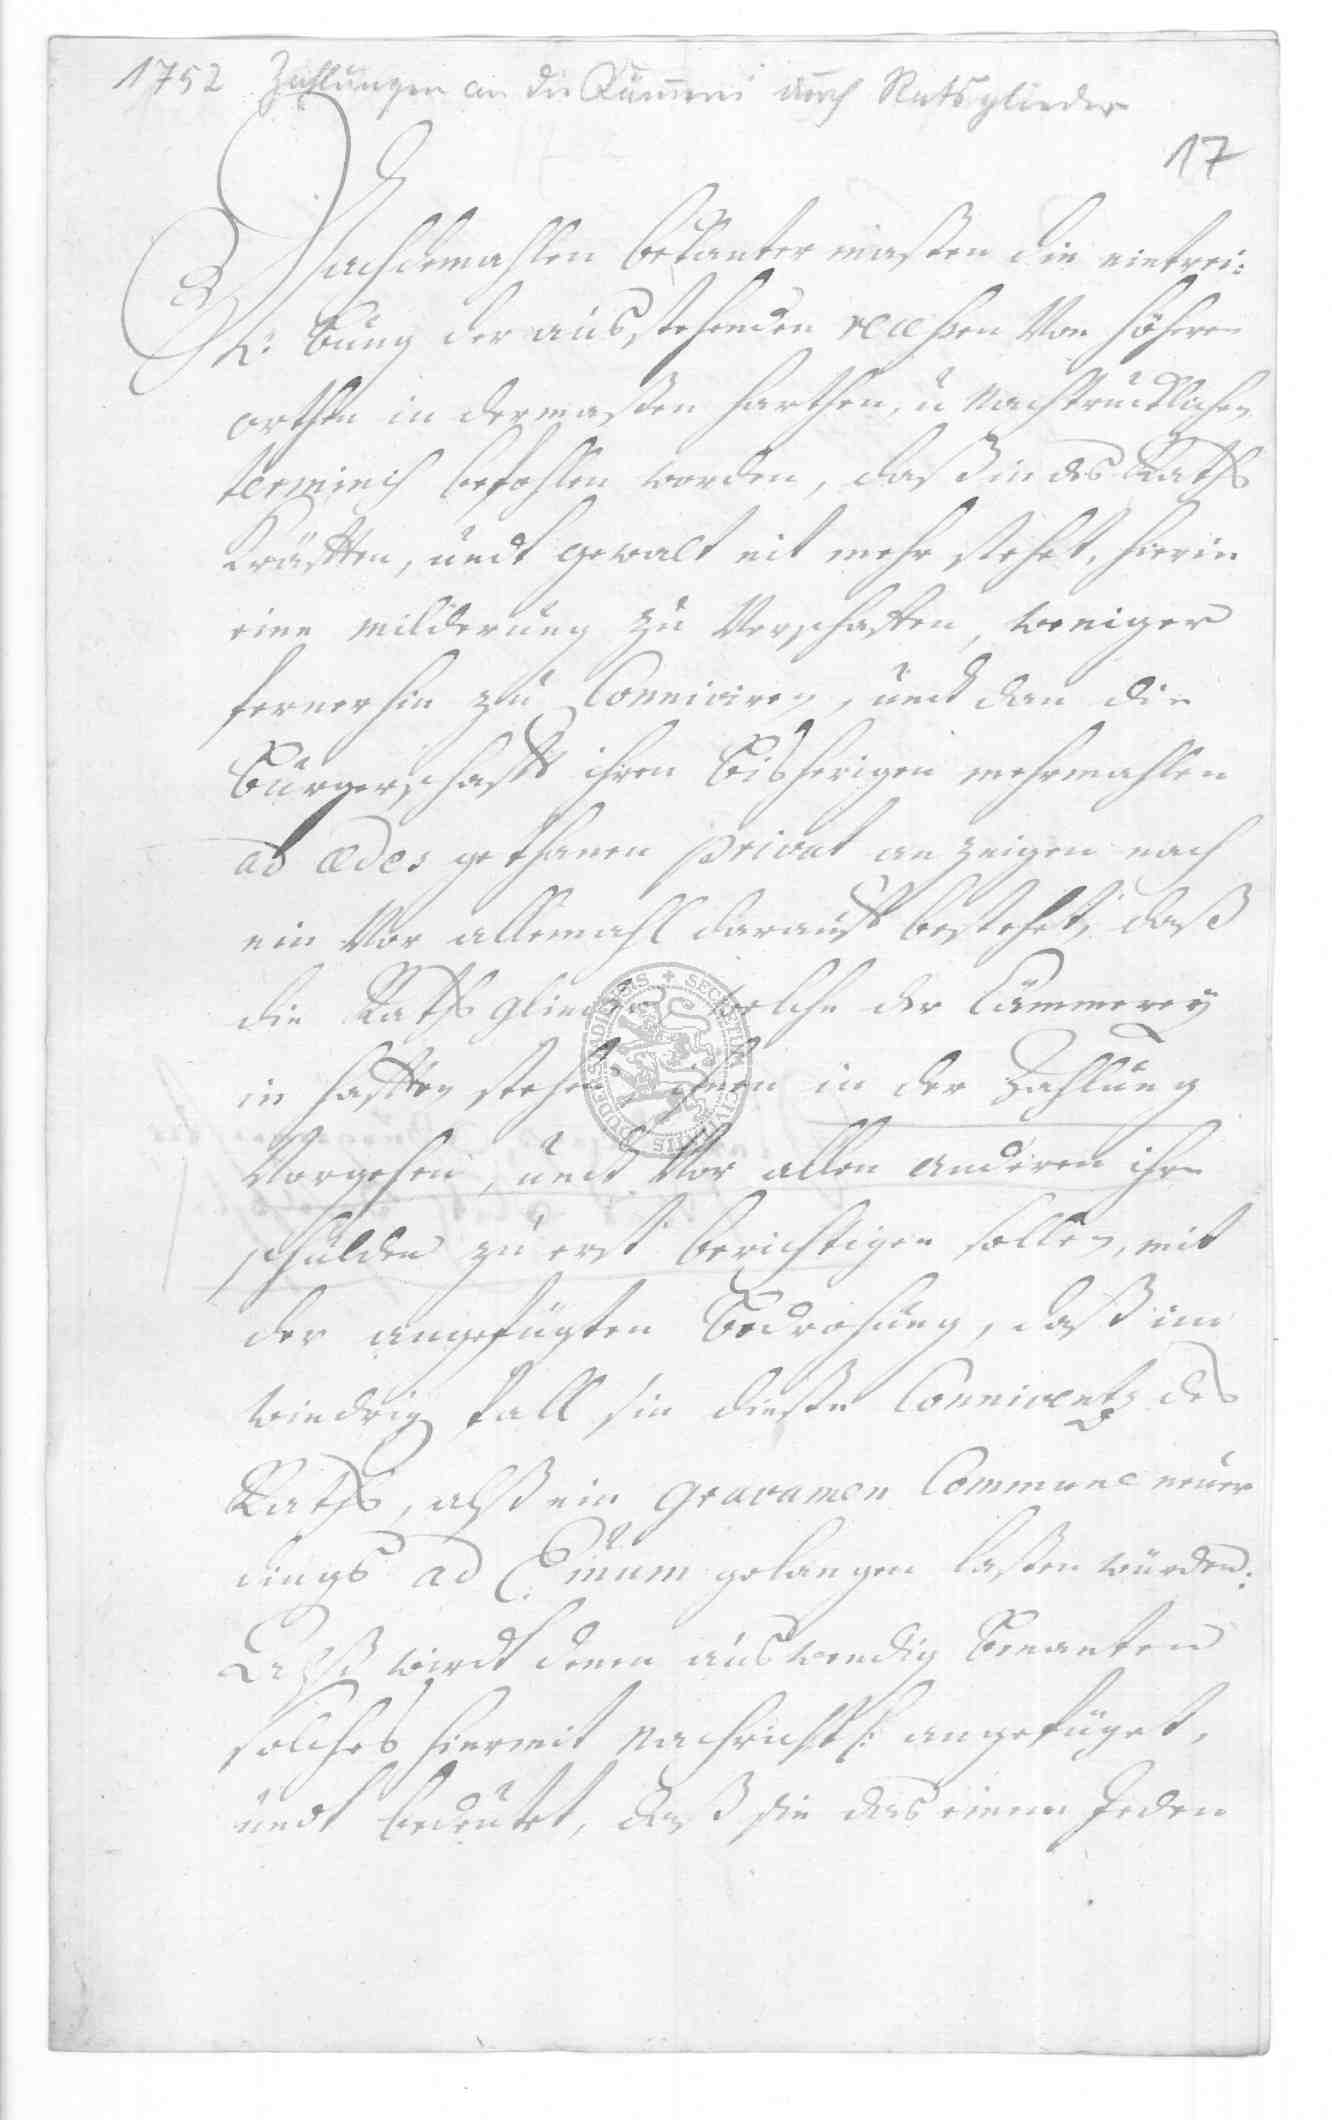 1752 Zahlungen an die Kämmerei durch Ratsglieder
17
Nachdemahlen bekanter maßen die eintrei:
bung der ausstehenden recessen von höheren
orthen in dermaßen harthen, u nachtrücklichen
terminis befohlen worden, daß in des Raths
Kräfften, undt gewalt nit mehr stehet, hierin
eine milderung zu verschaffen, weniger
fernerhin zu Conniviren, undt dan die
Bürgerschafft ihren bisherigen mehrmahlen
ad ædes gethanen privat anzeigen nach
ein vor allemahl darauff bestehet, daß
die Raths glieder welche der Cämmerey
in hafften stehen, ihnen in der Zahlung
vorgehen, undt vor allen anderen ihre
schulden zu erst berichtigen sollen, mit
der angefügten Bedrohung, daß im
wiedrig fall sie dieße Conniventz des
Raths, alß ein gravamen Commune neuer
dings ad Emum gelangen laßen würden.
Alß wirdt denen auswendig benanten
solches hiermit nachrichtl: angefüget,
undt bedeutet, daß sie das einem Jeden
SECRETUM CIVITATIS DUDERSTADIENSIS